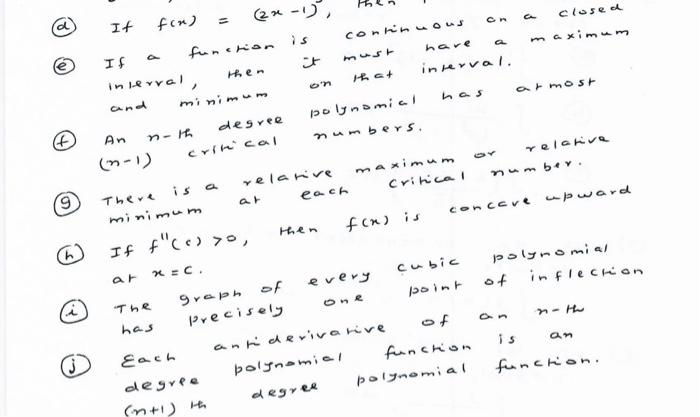 (d) If f(x) = (2x-1)³, then
(e) If a function is continuous on a closed
interval, then it must have a maximum
and minimum on that interval.
(f) An n-th degree polynomial has atmost
(n-1) critical numbers.
(g) There is a relative maximum or relative
minimum at each critical number.
(h) If f"(c) >0, then f(x) is concave upward
at x=c.
(i) The graph of every cubic polynomial
has precisely one point of inflection
(j) Each antiderivative of an n-th
degree polynomial function is an
(n+1) th degree polynomial function.